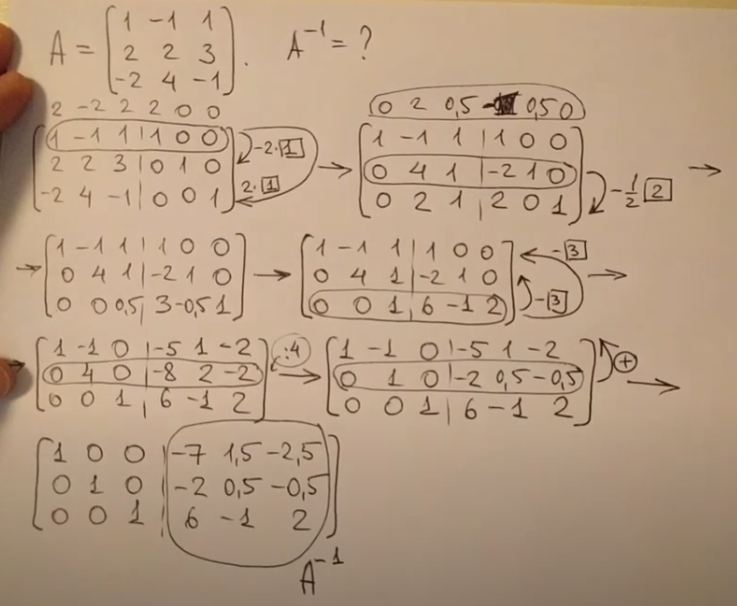 A = [1 -1 1
2 2 3
-2 4 -1]. A⁻¹ = ?
2 -2 2 2 0 0
0 2 0,5 - 0,5 0
[1 -1 1 | 1 0 0
2 2 3 | 0 1 0
-2 4 -1 | 0 0 1] -2·[1] 2·[1] →
[1 -1 1 | 1 0 0
0 4 1 | -2 1 0
0 2 1 | 2 0 1] -1/2 [2] →
→ [1 -1 1 | 1 0 0
0 4 1 | -2 1 0
0 0 0,5 | 3 -0,5 1] →
[1 -1 1 | 1 0 0
0 4 1 | -2 1 0
0 0 1 | 6 -1 2] -[3] -[3] →
[1 -1 0 | -5 1 -2
0 4 0 | -8 2 -2
0 0 1 | 6 -1 2] :4 →
[1 -1 0 | -5 1 -2
0 1 0 | -2 0,5 -0,5
0 0 1 | 6 -1 2] + →
[1 0 0 | -7 1,5 -2,5
0 1 0 | -2 0,5 -0,5
0 0 1 | 6 -1 2]
A⁻¹